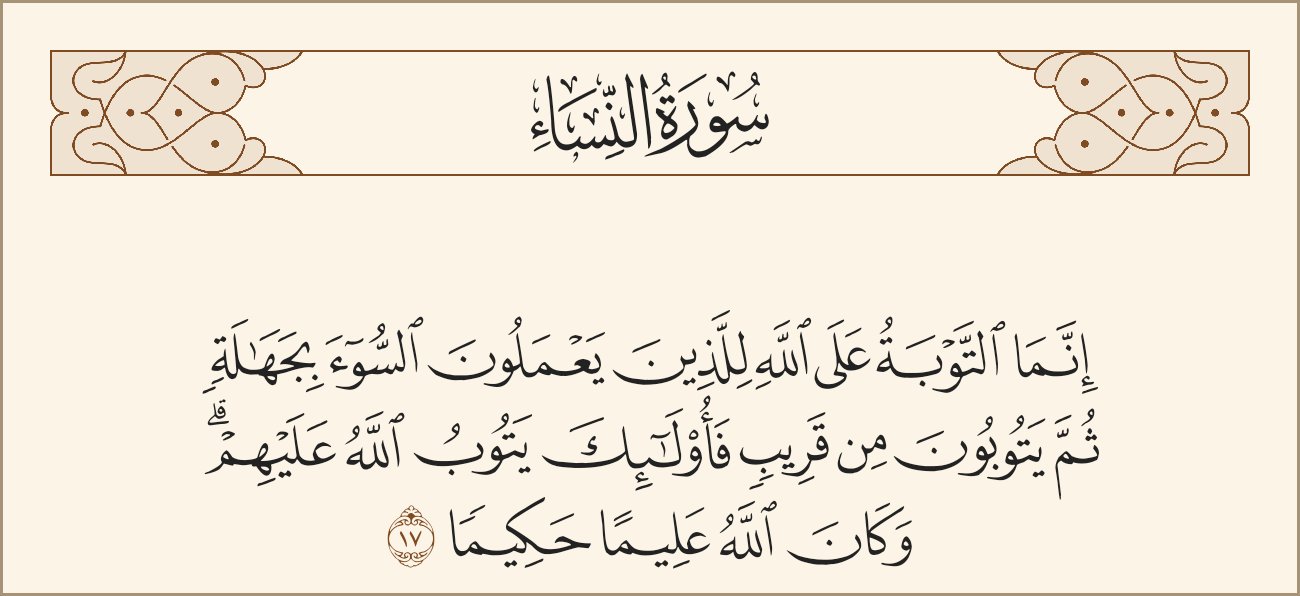 سُورَةُ النِّسَاءِ
إِنَّمَا ٱلتَّوْبَةُ عَلَى ٱللَّهِ لِلَّذِينَ يَعْمَلُونَ ٱلسُّوٓءَ بِجَهَٰلَةٍ
ثُمَّ يَتُوبُونَ مِن قَرِيبٍ فَأُو۟لَٰٓئِكَ يَتُوبُ ٱللَّهُ عَلَيْهِمْ ۗ
وَكَانَ ٱللَّهُ عَلِيمًا حَكِيمًا ١٧